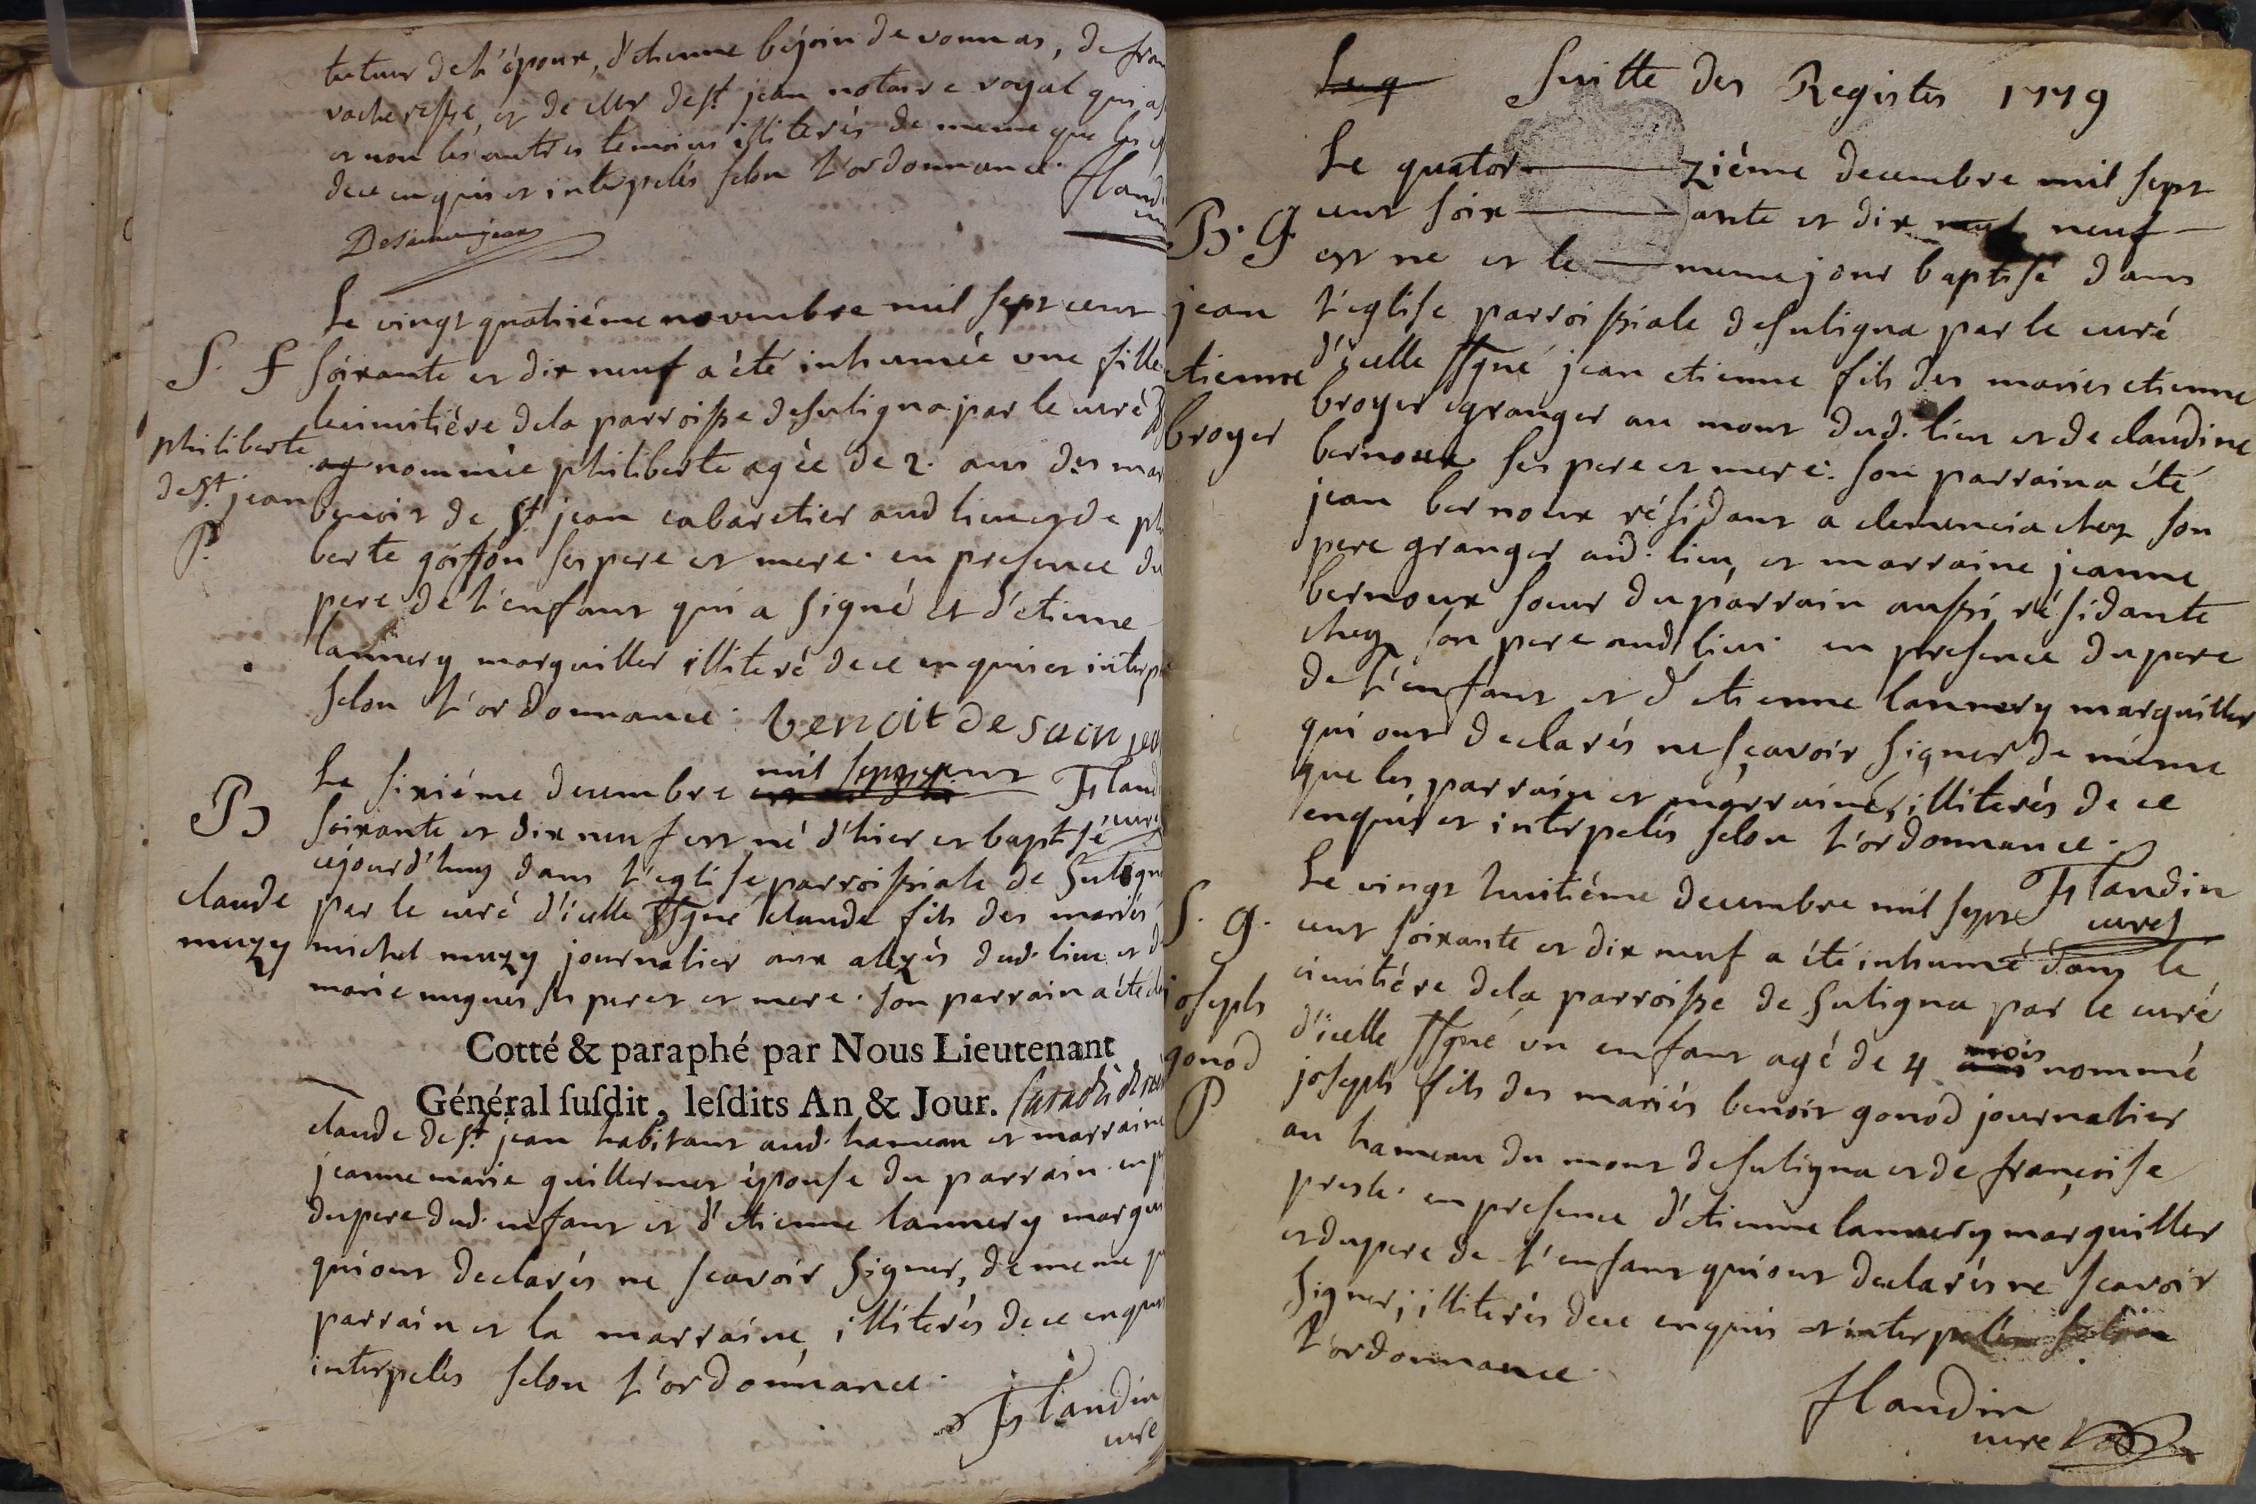 tuteur de l'époux, d'etienne béjoin de vonnas, de fran
vacheresse, et de Mr de st jean notaire royal qui a
et non les autres temoins illiterés de meme que les
de ce enquis et interpelés selon l'ordonnance.
Desaintjean
fland
Le vingt quatriéme novembre mil sept cent
S. F
soixante et dix neuf a été inhumée une fille
le cimitiére de la parroisse de suligna par le curé
philiberte
nommée philiberte agée de 2. ans des mar
de st. jean
benoit de st jean cabaretier aud lieu et de phi
P.
berte goiffon ses pere et mere. en presence du
pere de l'enfant qui a signé et d'etienne
lannery marguiller illiteré de ce enquis et interp
selon l'ordonnance. benoit de sain jea
Le sixiéme decembre mil sept cent
fland
curé
B
soixante et dix neuf est né d'hier et baptisé
cejourd'huy dans l'eglise parroissiale de Suligna
claude
par le curé d'icelle ssgné claude fils des mariés
muzy
michel muzy journalier aux alizés dud. lieu et d
marie nugues ses peres et mere. son parrain a été
Cotté & paraphé par Nous Lieutenant
Général susdit, lesdits An & Jour.
claude de st jean habitant aud. hameau et marraine
jeanne marie guillermet épouse du parrain. en p
du pere dud. enfant et d'etienne lannery margui
qui ont declarés ne scavoir signer, de meme qu
parrain et la marraine, illiterés de ce enquis
interpelés selon l'ordonnance.
flandin
curé
Suitte des Registes 1779
Le quator ziéme decembre mil sept
B. G
cent soix ante et dix neuf
est ne et le meme jour baptisé dans
jean
l'eglise parroissiale de suligna par le curé
etienne
d'icelle ssgné jean etienne fils des maries etienne
broyer
broyer granger au mont dud. lieu et de claudine
bernoux ses pere et mere. son parrain a été
jean bernoux résidant a clemencia chez son
pere granger aud. lieu, et marraine jeanne
bernoux soeur du parrain aussi résidante
chez son pere aud lieu. en presence du pere
de l'enfant et d'etienne lannery marguiller
qui ont declarés ne sçavoir signer de méme
que les parrain et marraine, illiterés de ce
enquis et interpelés selon l'ordonnance.
Le vingt huitiéme decembre mil sept
flandin
curé
S. G.
cent soixante et dix neuf a été inhumé dans le
cimitiére de la parroisse de Suligna par le curé
joseph
d'icelle ssgné un enfant agé de 4 mois nommé
gonod
joseph fils des mariés benoit gonod journalier
P
au hameau du mont de suligna et de françoise
preste. en presence d'etienne lannery marguiller
et du pere de l'enfant qui ont declarés ne scavoir
signer, illiterés de ce enquis et interpelés selon
l'ordonnance.
flandin
curé